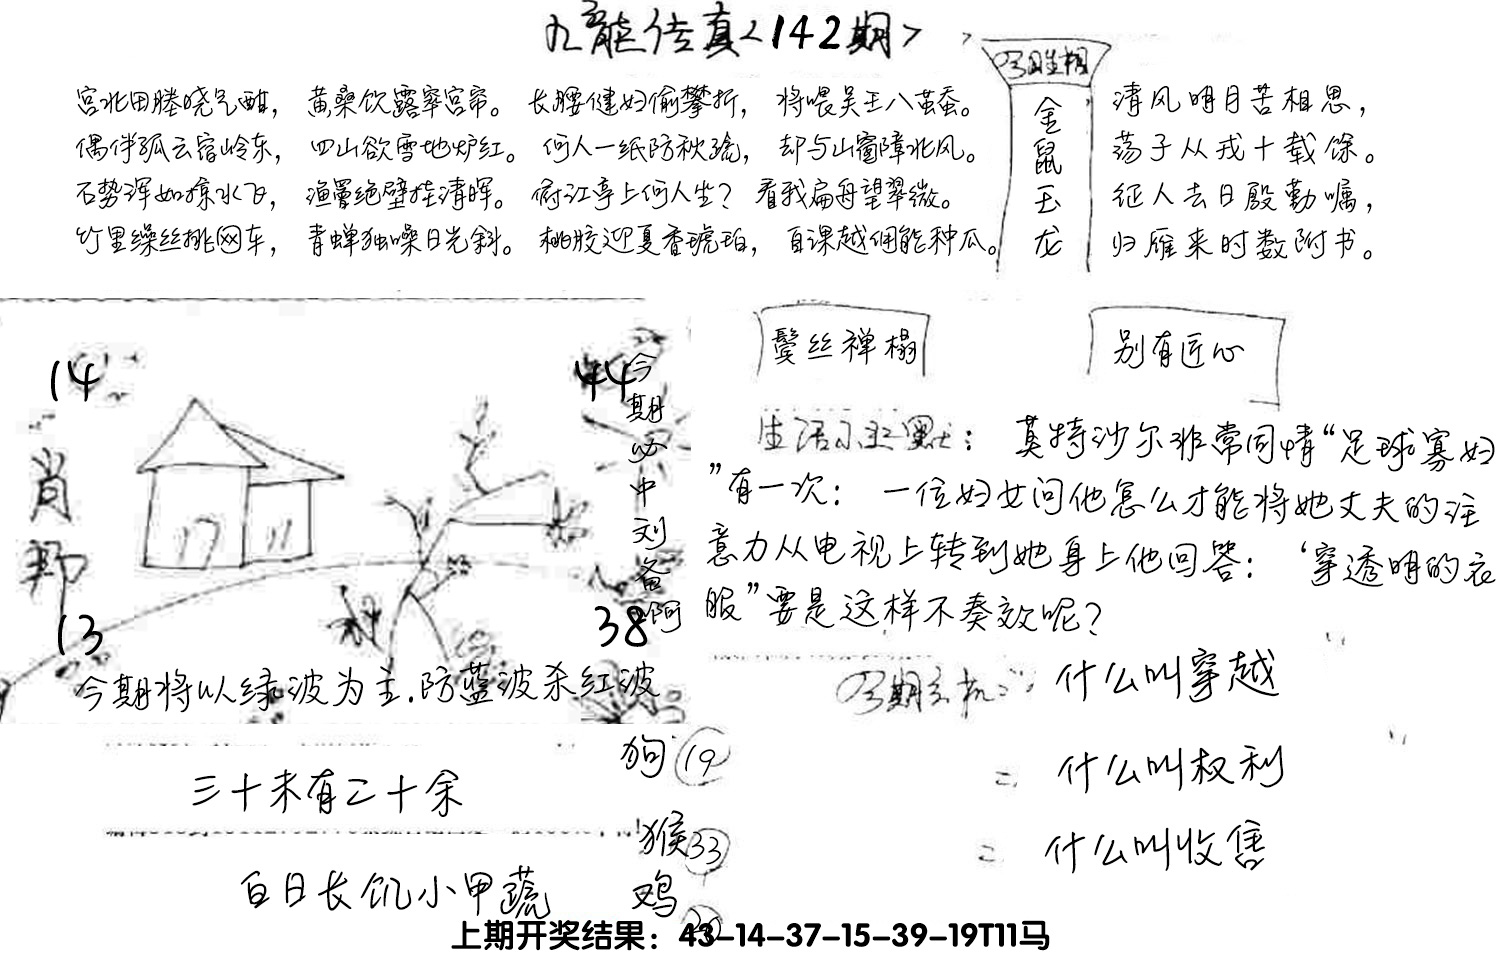 九龙传真<142期>
宫北田塍晓气酣，黄桑饮露窣宫帘。长腰健妇偷攀折，将喂吴王八茧蚕。
偶伴孤云宿岭东，四山欲雪地炉红。何人一纸防秋疏，却与山窗障北风。
石势浑如掠水飞，渔罾绝壁挂清晖。俯江亭上何人坐？看我扁舟望翠微。
竹里缲丝挑网车，青蝉独噪日光斜。桃胶迎夏香琥珀，自课越佣能种瓜。
金鼠玉龙
清风明月苦相思，
荡子从戎十载馀。
征人去日殷勤嘱，
归雁来时数附书。
鬓丝禅榻
别有匠心
14
44
肖
13
38
今期必中刘备啊
今期将以绿波为主.防蓝波杀红波
生活小幽默：莫特沙尔非常同情“足球寡妇
”有一次：一位妇女问他怎么才能将她丈夫的注
意力从电视上转到她身上他回答：‘穿透明的衣
服”要是这样不奏效呢？
今期玄机：什么叫穿越
二 什么叫权利
二 什么叫收售
三十未有二十余
白日长饥小甲蔬
狗 19
猴 33
鸡
上期开奖结果：43-14-37-15-39-19T11马